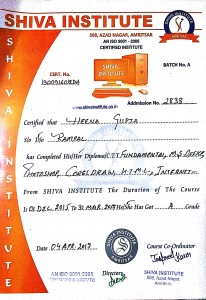 SHIVA INSTITUTE
508, AZAD NAGAR, AMRITSAR
AN ISO 9001 - 2008
CERTIFIED INSTITUTE
BATCH No. A
CERT. No.
www.shivainstitute.co.in
Addmission No. 2838
SHIVA INSTITUTE
Certified that Heena Gupta
S/o D/o Rampal
has Completed His(Her) Diploma I.T FUNDAMENTAL, M.S OFFICE,
PHOTOSHOP, CORELDRAW, H.T.M.L, INTERNET
From SHIVA INSTITUTE The Duration of The Course
01 DEC. 2015 To 31 MAR. 2017 Has Got A Grade
Date 04 APR. 2017
Course Co-Ordinator
AN ISO 9001:2008
CERTIFIED INSTITUTE
Director
SHIVA INSTITUTE
508, Azad Nagar,
Amritsar